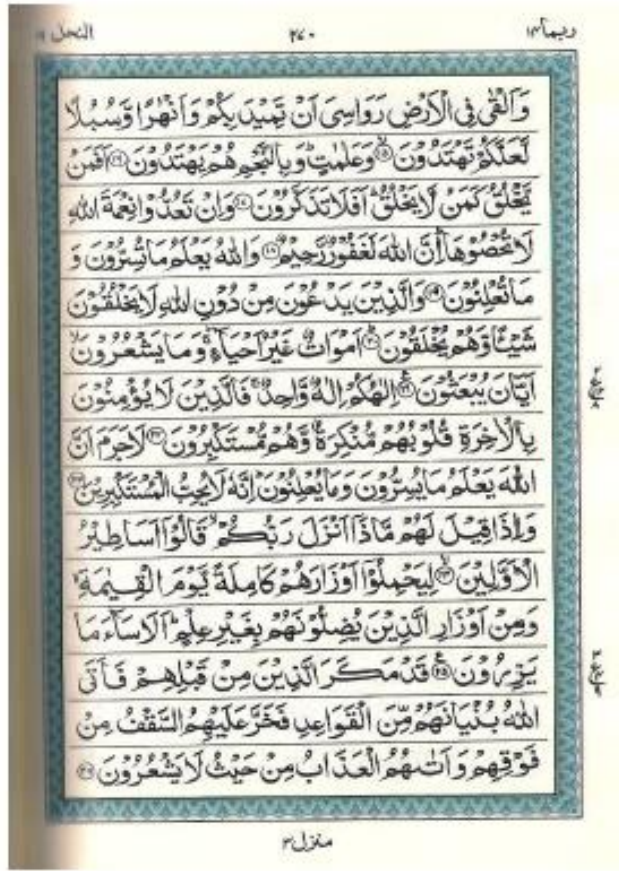 ربما ١٤
٢٧٠
النحل ١٦
وَاَلْقٰى فِى الْاَرْضِ رَوَاسِىَ اَنْ تَمِيْدَ بِكُمْ وَاَنْهٰرًا وَّسُبُلًا
لَّعَلَّكُمْ تَهْتَدُوْنَ ۙ﴿۱۵﴾ وَعَلٰمٰتٍ ؕ وَبِالنَّجْمِ هُمْ يَهْتَدُوْنَ ﴿۱۶﴾ اَفَمَنْ
يَّخْلُقُ كَمَنْ لَّا يَخْلُقُ ؕ اَفَلَا تَذَكَّرُوْنَ ﴿۱۷﴾ وَاِنْ تَعُدُّوْا نِعْمَةَ اللّٰهِ
لَا تُحْصُوْهَا ؕ اِنَّ اللّٰهَ لَغَفُوْرٌ رَّحِيْمٌ ﴿۱۸﴾ وَاللّٰهُ يَعْلَمُ مَا تُسِرُّوْنَ وَ
مَا تُعْلِنُوْنَ ﴿۱۹﴾ وَالَّذِيْنَ يَدْعُوْنَ مِنْ دُوْنِ اللّٰهِ لَا يَخْلُقُوْنَ
شَيْـًٔا وَّهُمْ يُخْلَقُوْنَ ؕ﴿۲۰﴾ اَمْوَاتٌ غَيْرُ اَحْيَآءٍ ۚ وَمَا يَشْعُرُوْنَ ۙ
اَيَّانَ يُبْعَثُوْنَ ﴿۲۱﴾ اِلٰهُكُمْ اِلٰهٌ وَّاحِدٌ ۚ فَالَّذِيْنَ لَا يُؤْمِنُوْنَ
بِالْاٰخِرَةِ قُلُوْبُهُمْ مُّنْكِرَةٌ وَّهُمْ مُّسْتَكْبِرُوْنَ ﴿۲۲﴾ لَا جَرَمَ اَنَّ
اللّٰهَ يَعْلَمُ مَا يُسِرُّوْنَ وَمَا يُعْلِنُوْنَ ؕ اِنَّهٗ لَا يُحِبُّ الْمُسْتَكْبِرِيْنَ ﴿۲۳﴾
وَاِذَا قِيْلَ لَهُمْ مَّاذَاۤ اَنْزَلَ رَبُّكُمْ ۙ قَالُوْۤا اَسَاطِيْرُ
الْاَوَّلِيْنَ ۙ﴿۲۴﴾ لِيَحْمِلُوْۤا اَوْزَارَهُمْ كَامِلَةً يَّوْمَ الْقِيٰمَةِ ۙ
وَمِنْ اَوْزَارِ الَّذِيْنَ يُضِلُّوْنَهُمْ بِغَيْرِ عِلْمٍ ؕ اَلَا سَآءَ مَا
يَزِرُوْنَ ﴿۲۵﴾ قَدْ مَكَرَ الَّذِيْنَ مِنْ قَبْلِهِمْ فَاَتَى
اللّٰهُ بُنْيَانَهُمْ مِّنَ الْقَوَاعِدِ فَخَرَّ عَلَيْهِمُ السَّقْفُ مِنْ
فَوْقِهِمْ وَاَتٰىهُمُ الْعَذَابُ مِنْ حَيْثُ لَا يَشْعُرُوْنَ ﴿۲۶﴾
منزل ٣